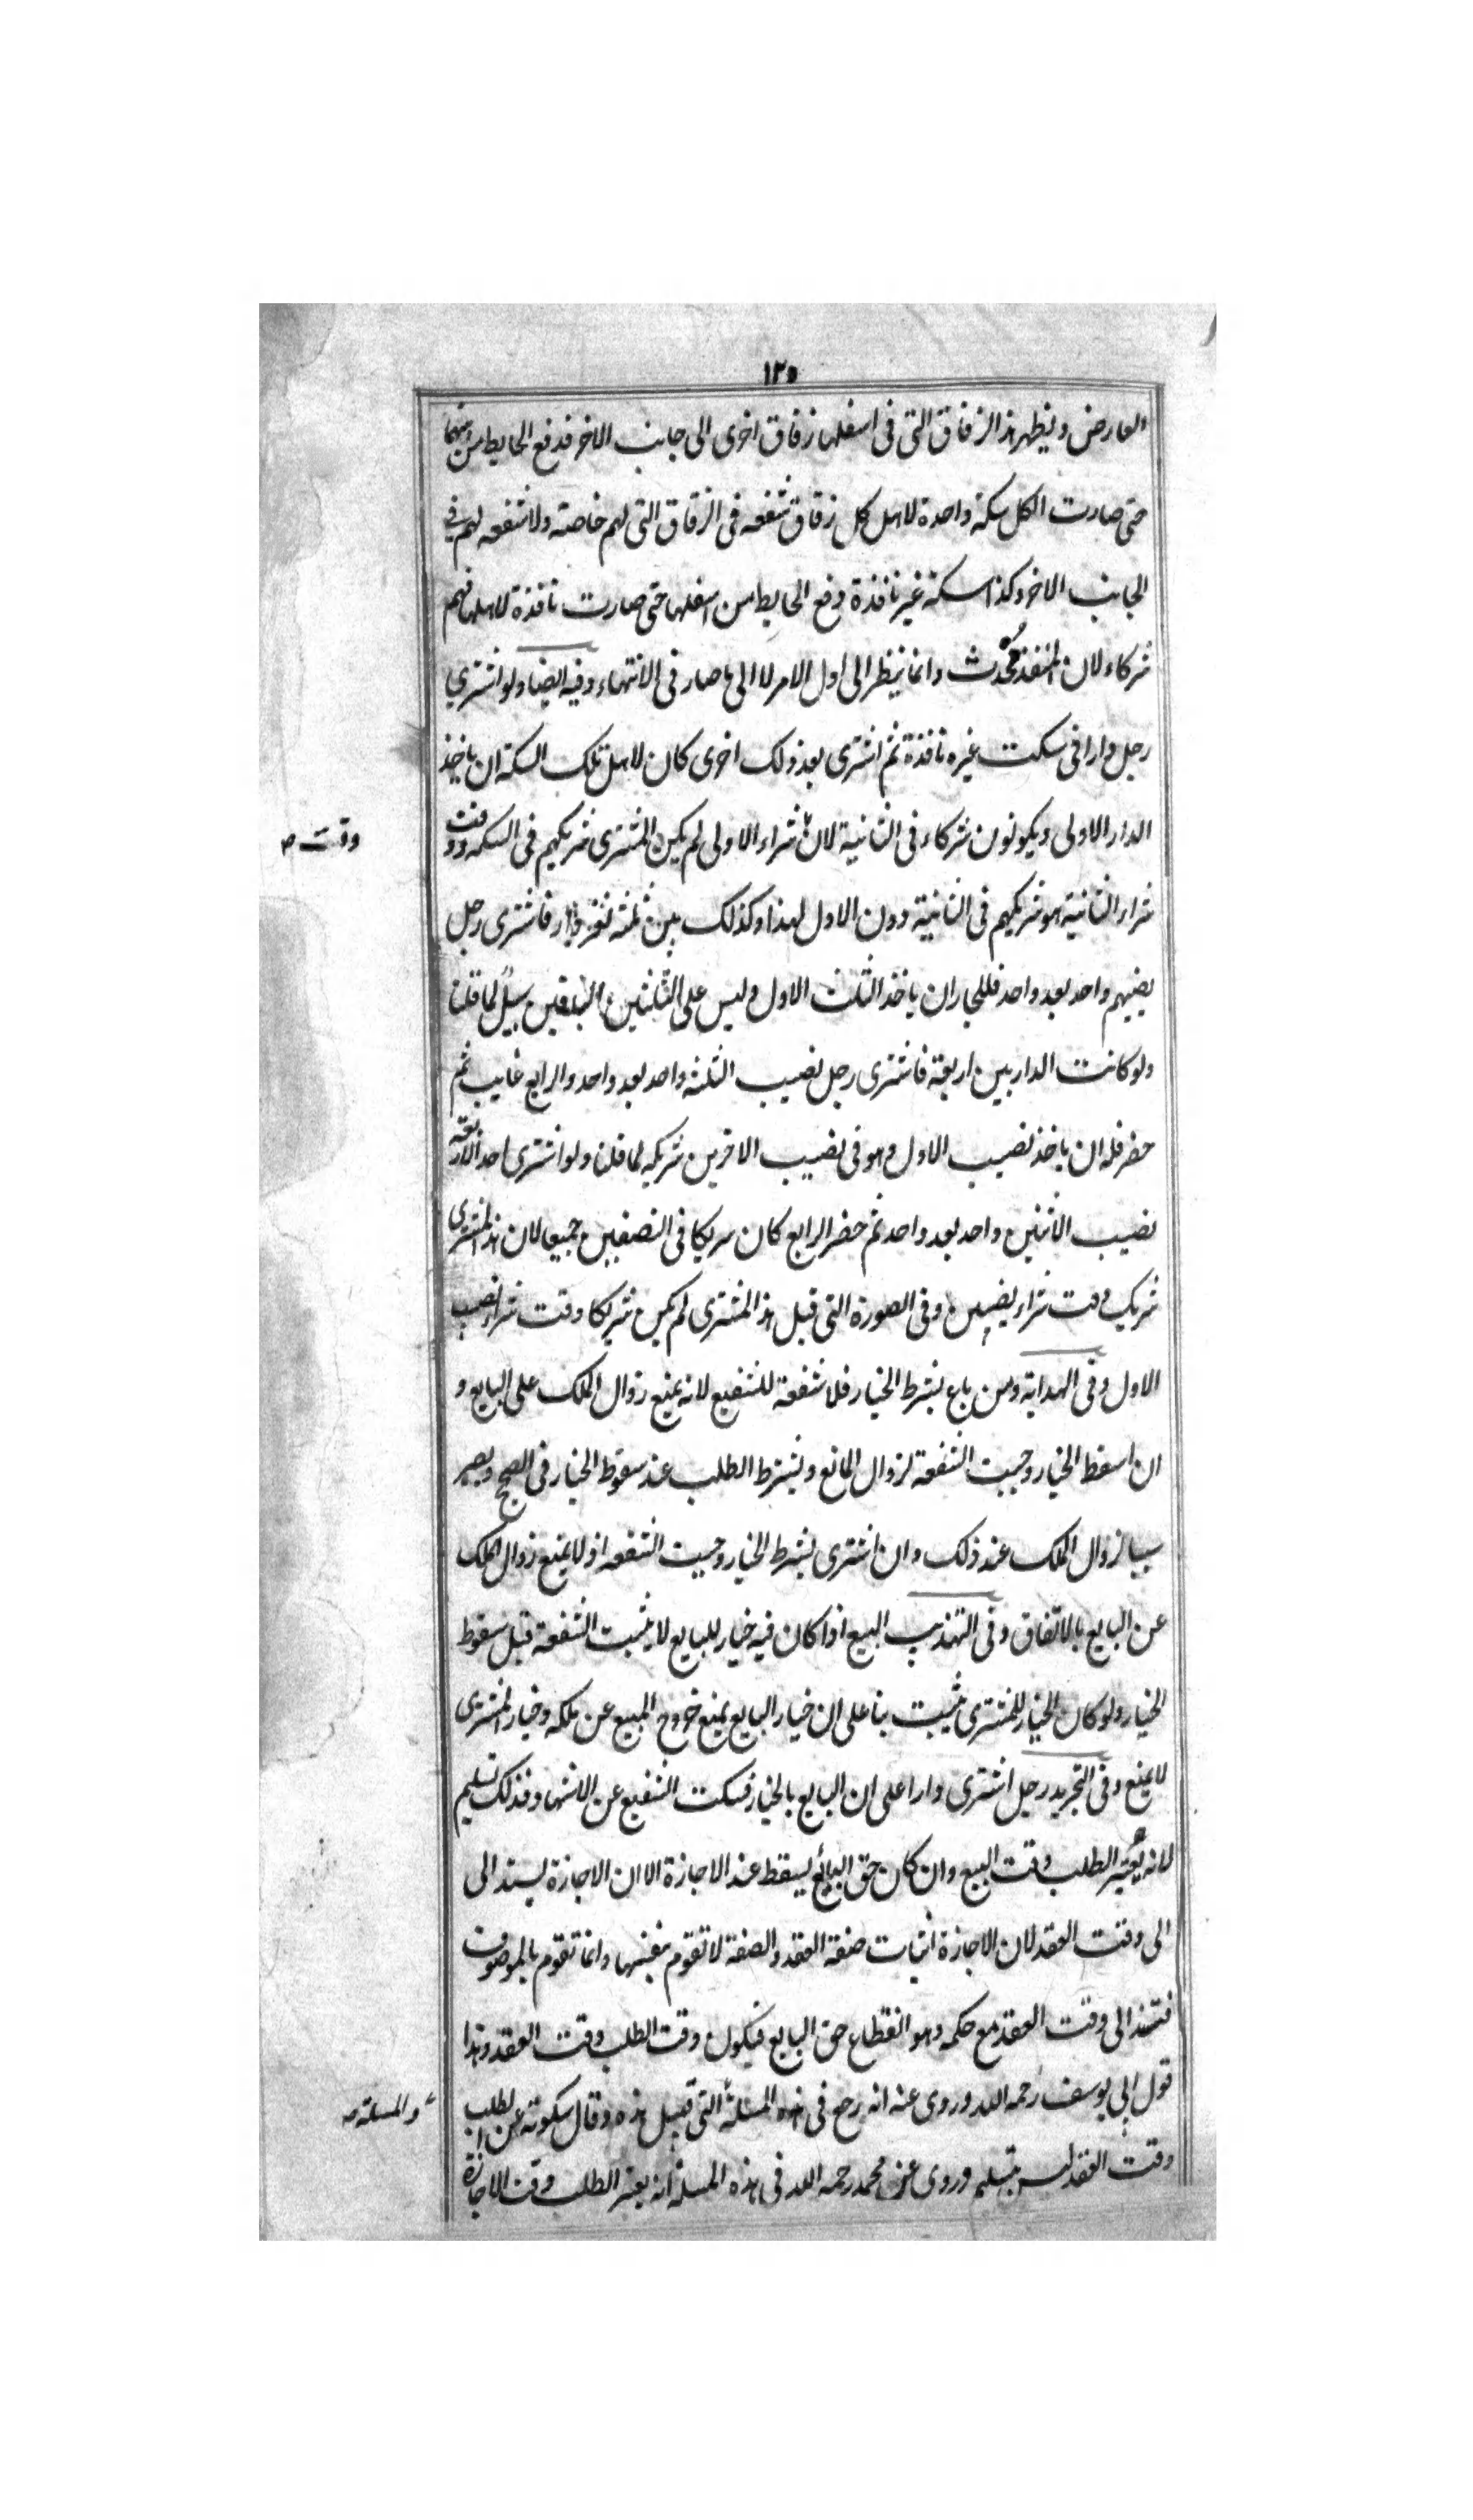 ١٢٥
العارض ونظير هذا الزقاق التى فى اسفلها زقاق اخرى الى جانب الاخر فدفع الحايط من بينهما
حتى صارت الكل سكة واحدة لاهل كل زقاق شفعه فى الزقاق التى لهم خاصته ولا شفعه لهم فى
الجانب الاخر وكذا سكة غير نافذة رفع الحايط من اسفلها حتى صارت نافذة لاهلها فهم
شركاء لان المنفذ محدث وانما ينظر الى اول الامر لا الى ما صار فى الانتهاء وفيه ايضا ولو اشترى
رجل دارا فى سكت غيره نافذة ثم اشترى بعد ذلك اخرى كان لاهل تلك السكة ان ياخذ
الدار الاولى ويكونون شركاء فى الثانية لان شراء الاولى لم يكن المشترى شريكهم فى السكه ووقت
وقت صـ
شراء الثانية هو شريكهم فى الثانية دون الاول لهذا وكذلك بين ثلثه نفر دار فاشترى رجل
نصيبهم واحد بعد واحد فللجار ان ياخذ الثلث الاول وليس على الثلثين الباقيين سبيل لما قلنا
ولو كانت الدار بين اربعة فاشترى رجل نصيب الثلثه واحد بعد واحد والرابع غايب ثم
حضر فله ان ياخذ نصيب الاول وهو فى نصيب الاخرين شريكه لما قلنا ولو اشترى احد الاربعه
نصيب الاثنين واحد بعد واحد ثم حضر الرابع كان سريكا فى النصفين جميعا لان هذا المشترى
شريك وقت شراء نصيبين وفى الصورة التى قبل هذا المشترى لم يكن شريكا وقت شراء نصيب
الاول وفى الهداية ومن باع بشرط الخيار فلا شفعة للشفيع لانه يمنع زوال الملك على البايع و
ان اسقط الخيار وجبت الشفعة لزوال المانع ويشترط الطلب عند سقوط الخيار فى الصحيح ويصير
سببا لزوال الملك عند ذلك وان اشترى بشرط الخيار وجبت الشفعه اذ لا يمنع زوال الملك
عن البايع بالاتفاق وفى التهذيب البيع اذا كان فيه خيار للبايع لا يثبت الشفعة قبل سقوط
الخيار ولو كان الخيار للمشترى يثبت بنا على ان خيار البايع يمنع خروج المبيع عن ملكه وخيار المشترى
لا يمنع وفى التجريد رجل اشترى دارا على ان البايع بالخيار فسكت الشفيع عن الاشهاد فذلك تسليم
لانه يعتبر الطلب وقت البيع وان كان حق البائع يسقط عند الاجازة الا ان الاجازة يستند الى
الى وقت العقد لان الاجازة اثبات صفة العقد والصفة لا تقوم بنفسها وانما تقوم بالموصوف
فتستند الى وقت العقد مع حكمه وهو انقطاع حق البايع فيكون وقت الطلب وقت العقد وهذا
قول ابى يوسف رحمه الله وروى عنه انه رجع فى هذه المسلة التى قبل هذه وقال سكوته عن الطلب
والمسلة صـ
وقت العقد ليس بتسليم وروى عن محمد رحمه الله فى هذه المسلة انه يعتبر الطلب وقت الاجازة